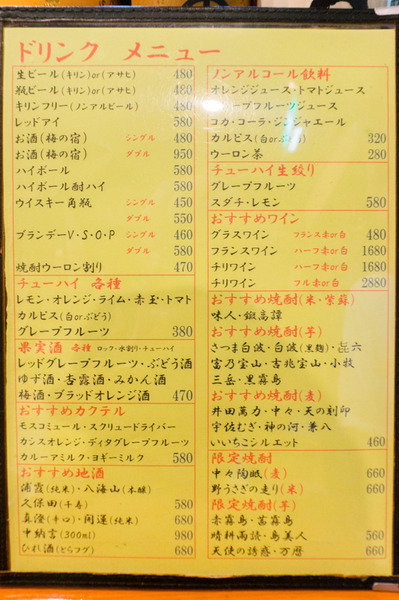 ドリンク メニュー
生ビール(キリン)or(アサヒ) 480
瓶ビール(キリン)or(アサヒ) 480
キリンフリー(ノンアルビール) 480
レッドアイ 480
お酒(梅の宿) シングル 480
お酒(梅の宿) ダブル 950
ハイボール 480
ハイボール酎ハイ 480
ウイスキー角瓶 シングル 450
ダブル 550
ブランデーV・S・O・P シングル 460
ダブル 580
焼酎ウーロン割り 470
チューハイ 各種
レモン・オレンジ・ライム・赤玉・トマト
カルピス(白orぶどう)
グレープフルーツ 380
果実酒 各種 ロック・水割り・チューハイ
レッドグレープフルーツ・ぶどう酒
ゆず酒・杏露酒・みかん酒
梅酒・ブラッドオレンジ酒 470
おすすめカクテル
モスコミュール・スクリュードライバー
カシスオレンジ・ディタグレープフルーツ
カルーアミルク・ヨギーミルク 580
おすすめ地酒
浦霞(純米)・八海山(本醸)
久保田(千寿) 580
真澄(辛口)・開運(純米) 680
中納言(300ml) 980
ひれ酒(とらフグ) 680
ノンアルコール飲料
オレンジジュース・トマトジュース
グレープフルーツジュース
コカ・コーラ・ジンジャエール
カルピス(白orぶどう) 320
ウーロン茶 280
チューハイ生絞り
グレープフルーツ
スダチ・レモン 580
おすすめワイン
グラスワイン フランス赤or白 480
フランスワイン ハーフ赤or白 1680
チリワイン ハーフ赤or白 1680
チリワイン フル赤or白 2880
おすすめ焼酎(米・紫蘇)
味人・鍛高譚
おすすめ焼酎(芋)
さつま白波・白波(黒麹)・㐂六
富乃宝山・吉兆宝山・小牧
三岳・黒霧島
おすすめ焼酎(麦)
井田萬力・中々・天の刻印
宇佐むぎ・神の河・兼八
いいちこシルエット 460
限定焼酎
中々陶眠(麦) 660
野うさぎの走り(米) 660
限定焼酎(芋)
赤霧島・茜霧島
晴耕雨読・島美人 560
天使の誘惑・万暦 660